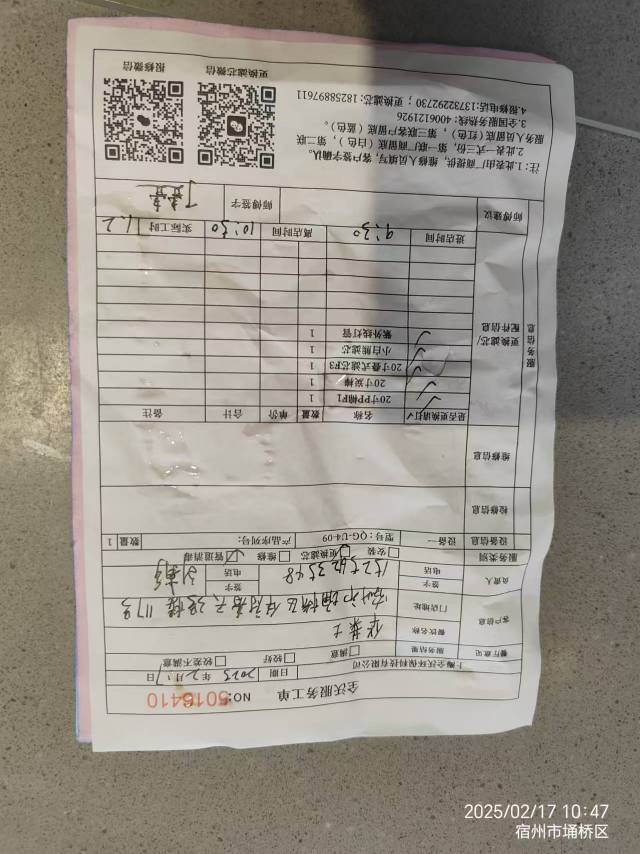 全沃服务工单
NO: 5016410
上海全沃环保科技有限公司
日期
2025 年 2 月 17 日
餐厅意见
服务结果
满意
较好
较差不满意
客户信息
餐饮名称
华莱士
门店地址
负责人
签字
电话
签字
电话
服务类别
安装
更换滤芯
维修
管道消毒
设备信息
设备一
型号：QG-U4-09
产品序列号：
数量
1
检修信息
维修信息
服务信息
更换滤芯/
配件信息
是否更换请打✓
名称
数量
单价
合计
备注
✓ 20寸PP棉P1 1
✓ 20寸炭棒 1
✓ 20寸叠式滤芯P3 1
✓ 小白熊滤芯 1
✓ 紫外线灯管 1
进店时间
9:30
离店时间
10:30
实际工时
师傅建议
师傅签字
注：1.此表由厂商提供，维修人员填写，客户签字确认。
2.此表一式三份，第一联厂商留底（白色），第二联
服务人员留底（红色），第三联客户留底（蓝色）。
3.全国服务热线：4006121926
4.报修电话：13732292730；更换滤芯：18258897611
更换滤芯微信
报修微信
2025/02/17 10:47
宿州市埇桥区